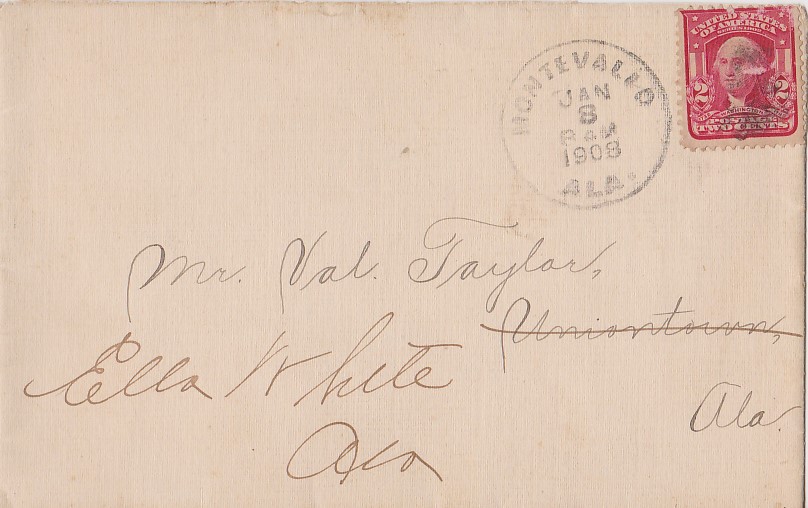 UNITED STATES
OF AMERICA
SERIES 1902
2 2
WASHINGTON
POSTAGE
TWO CENTS
MONTEVALLO
JAN
8
8 AM
1908
ALA.
Mr. Val. Taylor,
Uniontown,
Ala.
Ella White
Ala